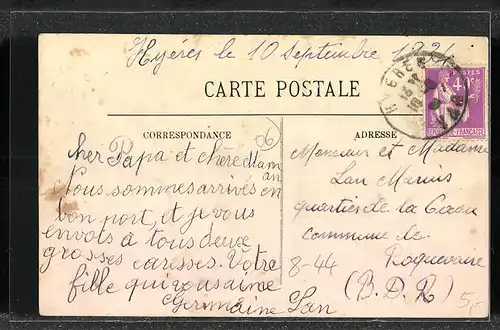 Hyéres le 10 Septembre
CARTE POSTALE
CORRESPONDANCE
ADRESSE
06
cher Papa et chère Mam
an
Nous sommes arrivés en
bon port, et je vous
envois à tous deux
grosses caresses. Votre
fille qui vous aime
Germaine Lan
Monsieur et Madame
Lan Marius
quartier de la
commune de
Roquevaire
8-44 (B.D.R)
HYERES
VAR
POSTES
REPUBLIQUE FRANÇAISE
5,-